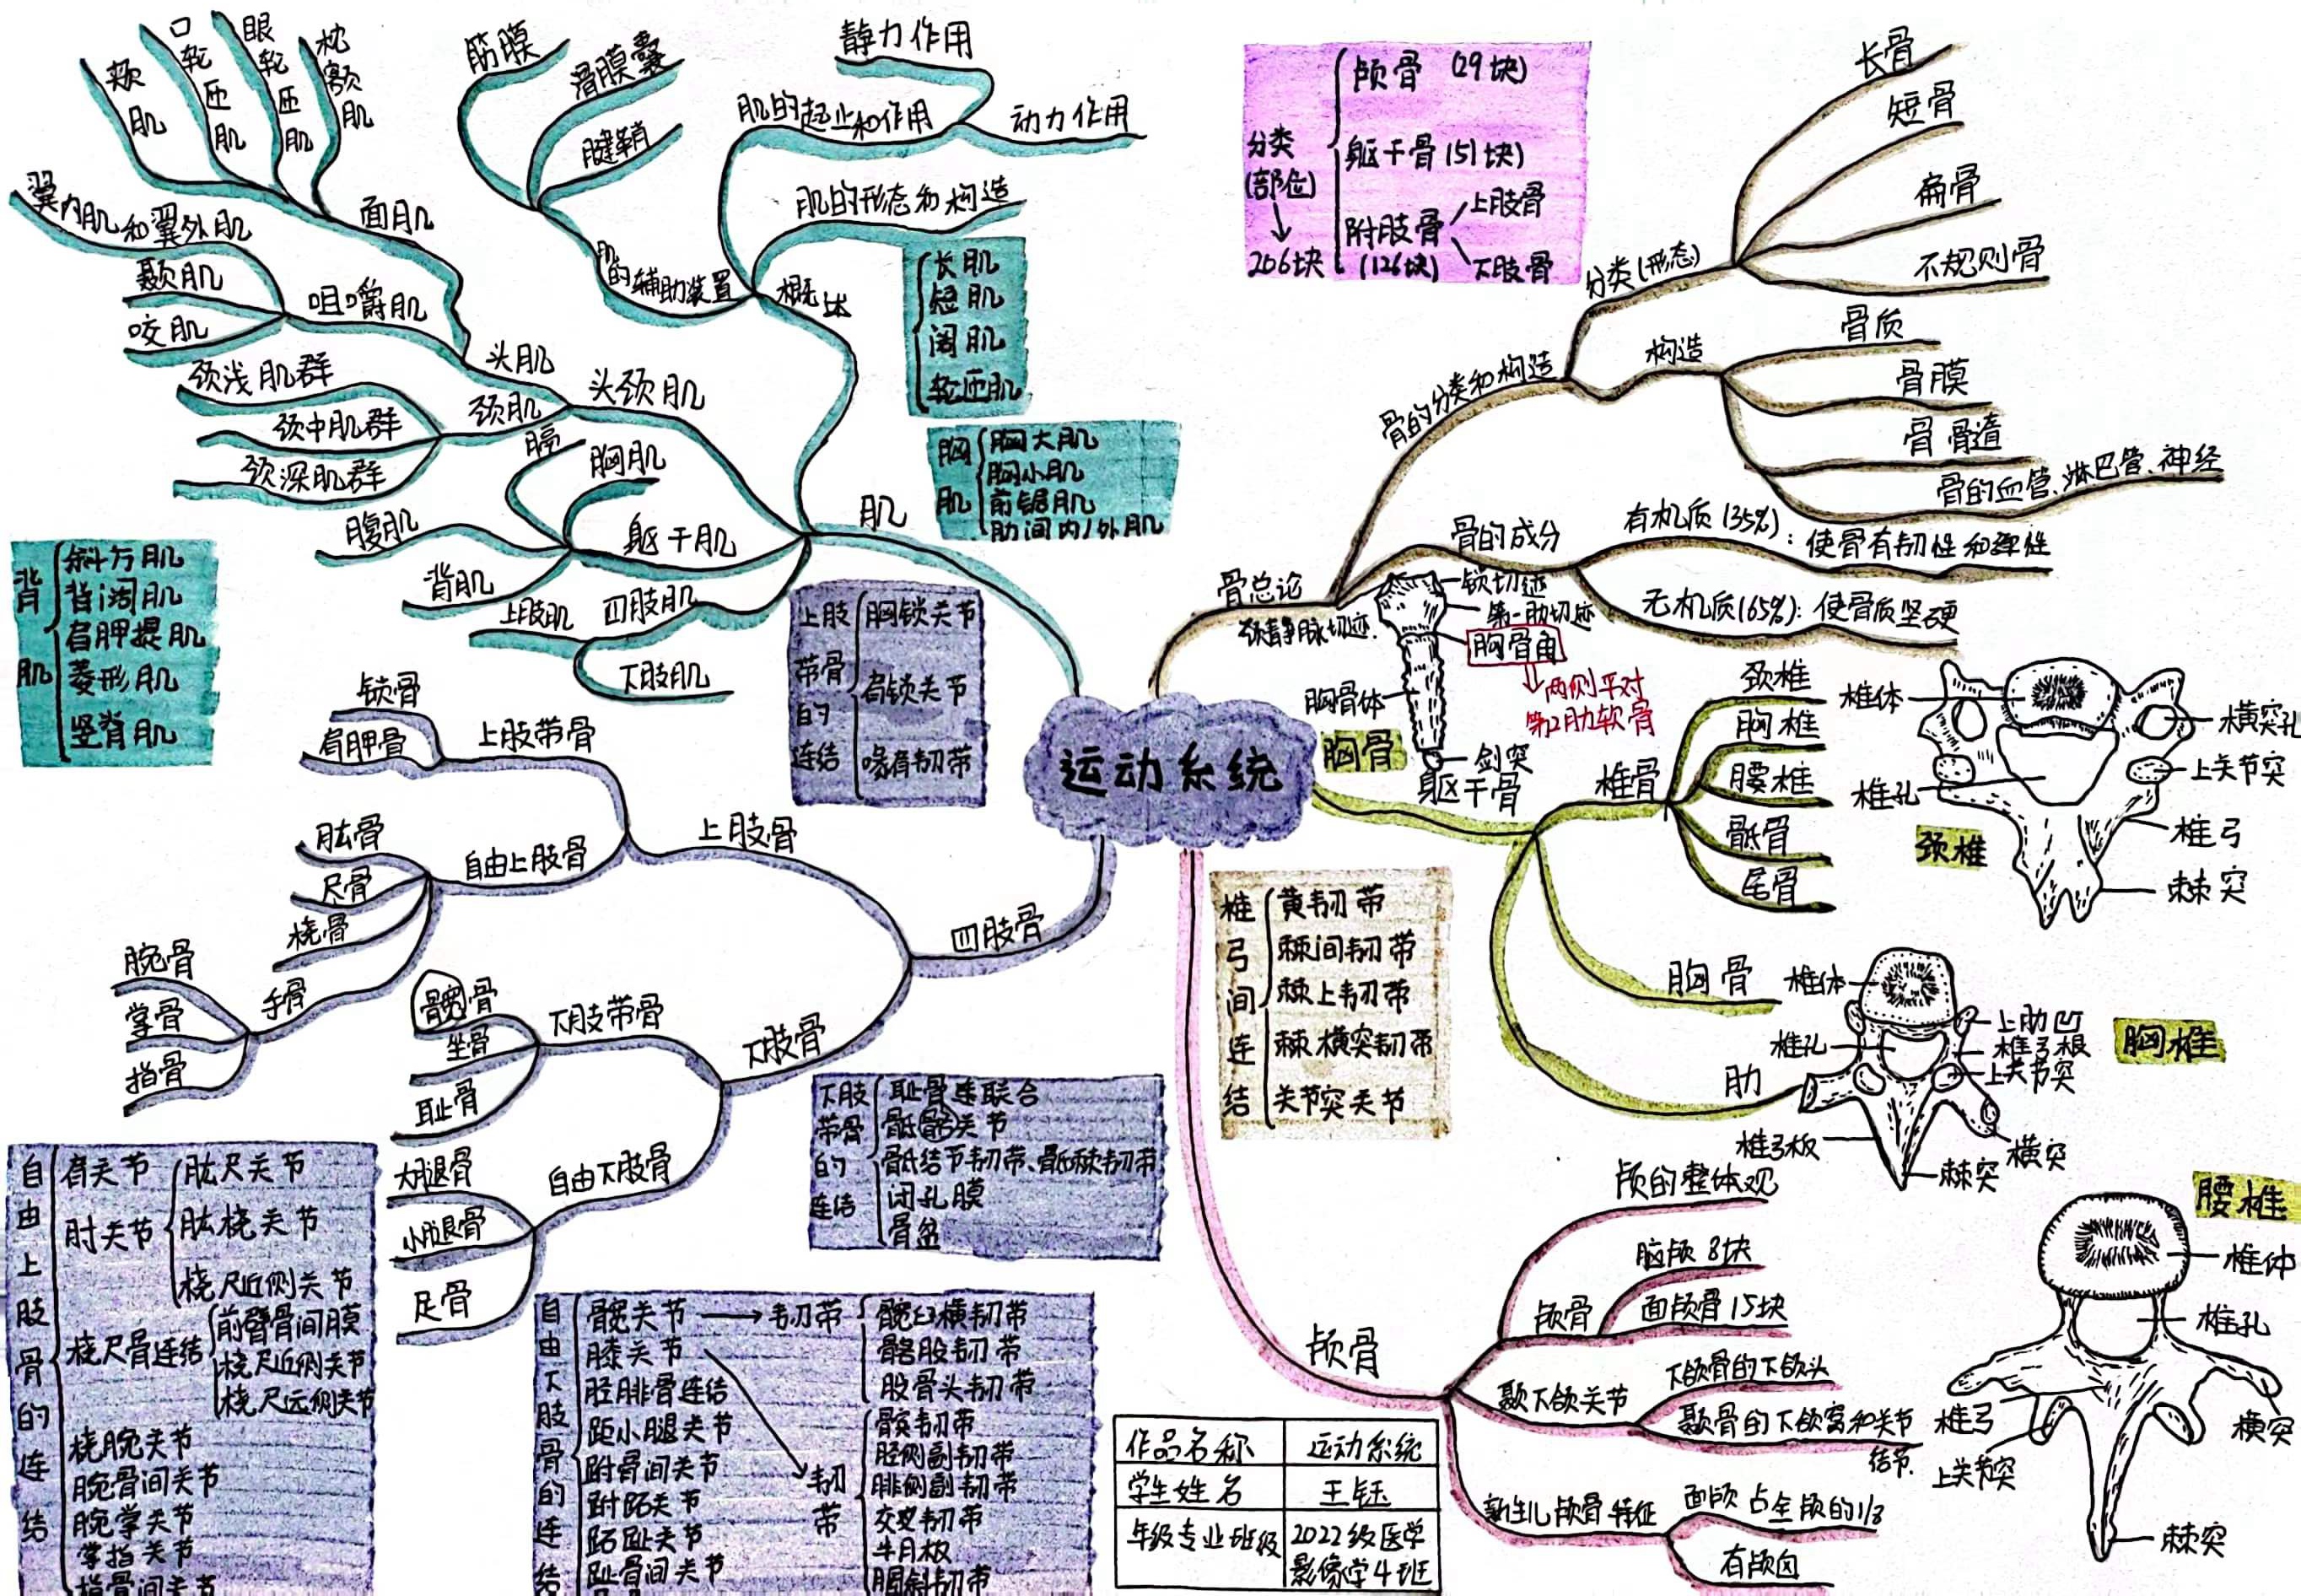 运动系统
肌
概述
肌的起止和作用
静力作用
动力作用
肌的形态和构造
长肌
短肌
阔肌
轮匝肌
肌的辅助装置
筋膜
滑膜囊
腱鞘
头颈肌
头肌
面肌
颊肌
口轮匝肌
眼轮匝肌
枕额肌
咀嚼肌
翼内肌和翼外肌
颞肌
咬肌
颈肌
颈浅肌群
颈中肌群
颈深肌群
躯干肌
膈
胸肌
腹肌
背肌
胸肌
胸大肌
胸小肌
前锯肌
肋间内/外肌
背肌
斜方肌
背阔肌
肩胛提肌
菱形肌
竖脊肌
四肢肌
上肢肌
下肢肌
上肢带骨的连结
胸锁关节
肩锁关节
喙肩韧带
四肢骨
上肢骨
上肢带骨
锁骨
肩胛骨
自由上肢骨
肱骨
尺骨
桡骨
手骨
腕骨
掌骨
指骨
下肢骨
下肢带骨
髋骨
坐骨
耻骨
自由下肢骨
大腿骨
小腿骨
足骨
下肢带骨的连结
耻骨连联合
骶髂关节
骶结节韧带、骶棘韧带
闭孔膜
骨盆
自由上肢骨的连结
肩关节
肘关节
肱尺关节
肱桡关节
桡尺近侧关节
桡尺骨连结
前臂骨间膜
桡尺近侧关节
桡尺远侧关节
桡腕关节
腕骨间关节
腕掌关节
掌指关节
指骨间关节
自由下肢骨的连结
髋关节 → 韧带
髋臼横韧带
髂股韧带
股骨头韧带
膝关节
韧带
髌韧带
胫侧副韧带
腓侧副韧带
交叉韧带
半月板
腘斜韧带
胫腓骨连结
距小腿关节
跗骨间关节
跗跖关节
跖趾关节
趾骨间关节
分类(部位)
↓
206块
颅骨 (29块)
躯干骨(51块)
附肢骨(126块)
上肢骨
下肢骨
骨总论
骨的分类和构造
分类(形态)
长骨
短骨
扁骨
不规则骨
构造
骨质
骨膜
骨骨道
骨的血管、淋巴管、神经
骨的成分
有机质(35%): 使骨有韧性和弹性
无机质(65%): 使骨质坚硬
颈静脉切迹
锁切迹
第一肋切迹
胸骨角
两侧平对
第2肋软骨
胸骨体
剑突
胸骨
躯干骨
椎骨
颈椎
胸椎
腰椎
骶骨
尾骨
胸骨
肋
椎体
横突孔
上关节突
椎孔
椎弓
棘突
颈椎
椎体
上肋凹
椎弓根
上关节突
椎孔
横突
椎弓板
棘突
胸椎
腰椎
椎体
椎孔
椎弓
上关节突
横突
棘突
椎弓间连结
黄韧带
棘间韧带
棘上韧带
棘横突韧带
关节突关节
颅骨
颅的整体观
颅骨
脑颅 8块
面颅骨15块
颞下颌关节
下颌骨的下颌头
颞骨的下颌窝和关节结节.
新生儿颅骨特征
面颅占全颅的1/8
有颅囟
作品名称 运动系统
学生姓名 王钰
年级专业班级 2022级医学影像学4班